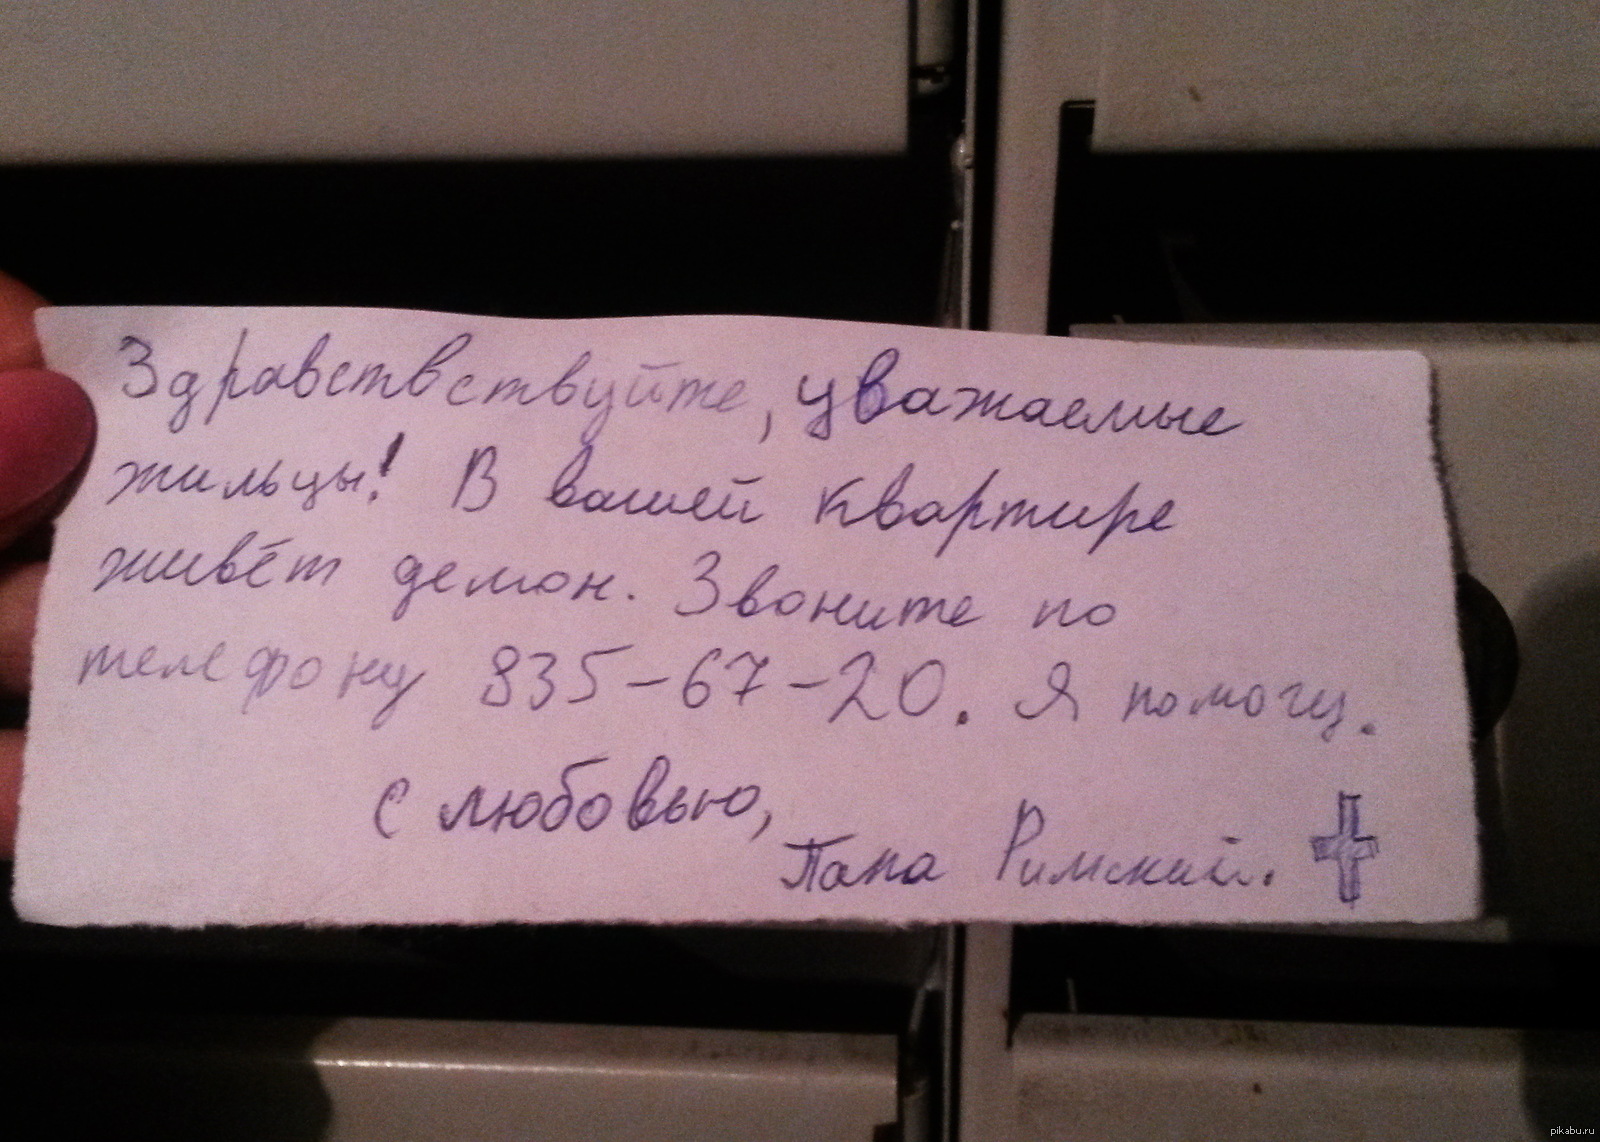 Здравствствуйте, уважаемые
жильцы! В вашей квартире
живёт демон. Звоните по
телефону 835-67-20. Я помогу.
С любовью,
Папа Римский.
pikabu.ru